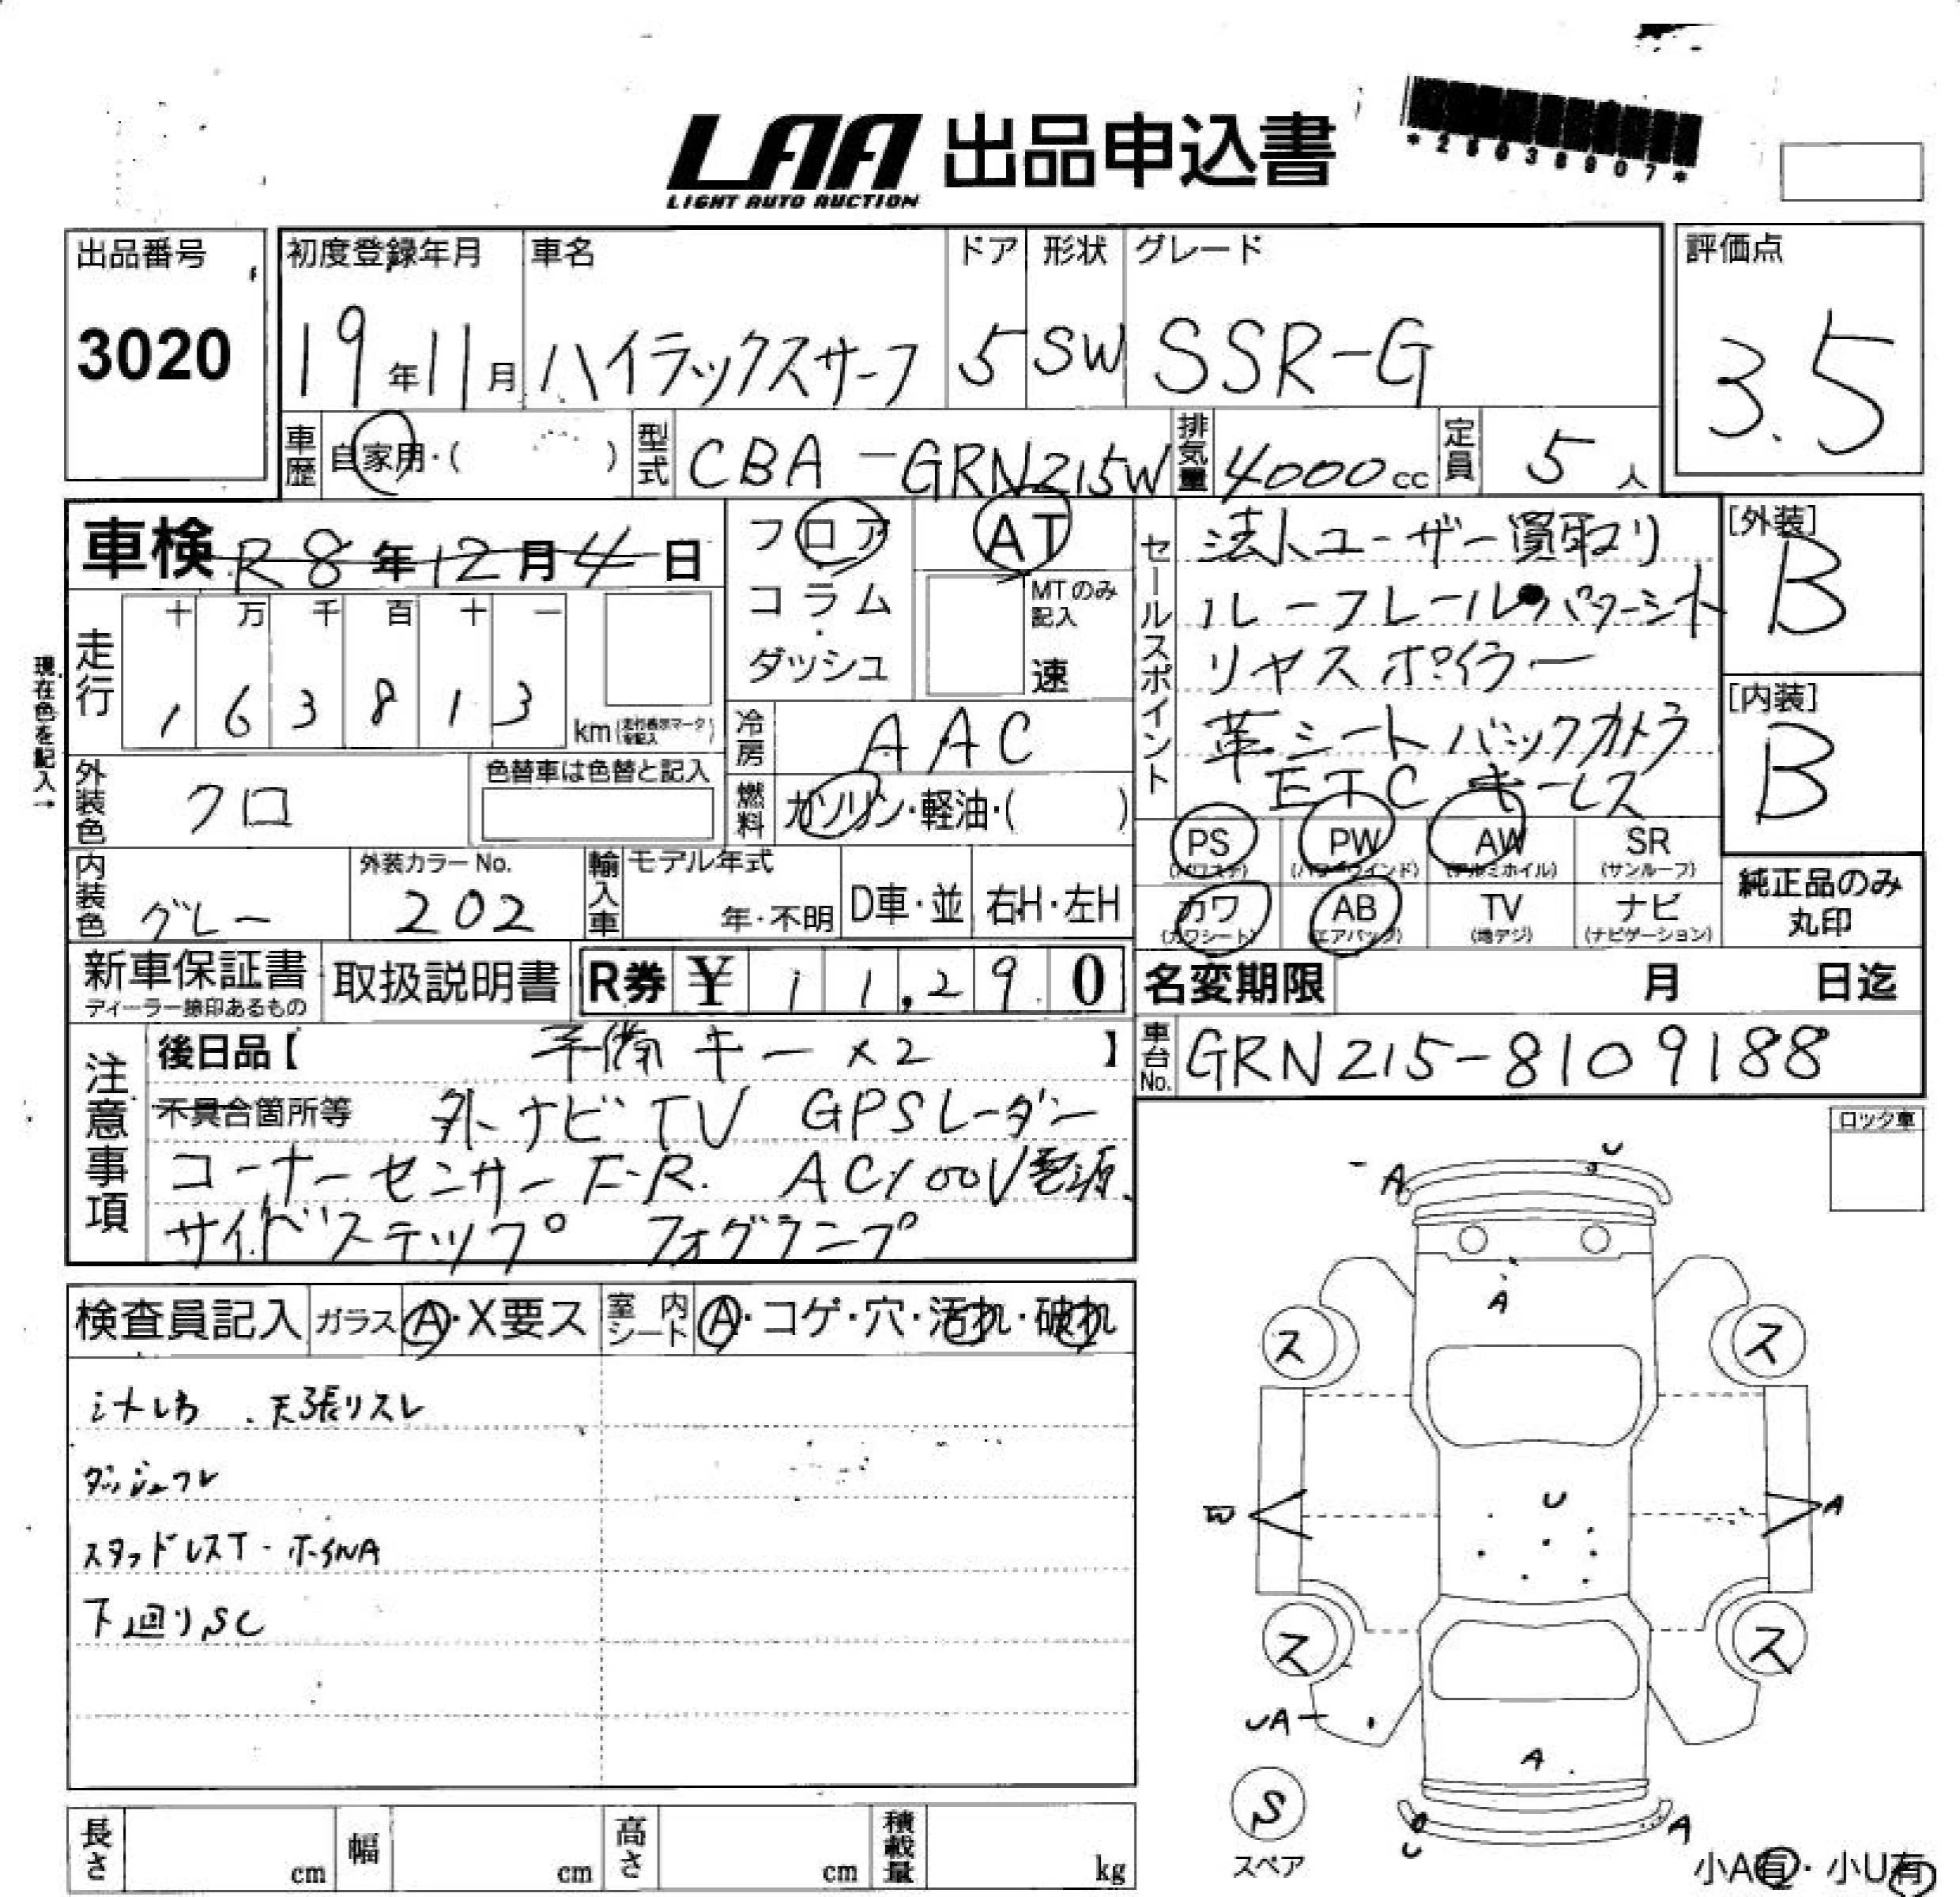 LAA 出品申込書
LIGHT AUTO AUCTION
*25038907*
出品番号 初度登録年月 車名 ドア 形状 グレード 評価点
3020 19年11月 ハイラックスサーフ 5 SW SSR-G 3.5
車歴 自家用・( ) 型式 CBA-GRN215W 排気量 4000cc 定員 5人
車検 R8年12月4日
フロア
コラム
・
ダッシュ
AT
MTのみ記入
速
セールスポイント
法人ユーザー買取り
ルーフレール パワーシート
リヤスポイラー
革シート バックカメラ
ETC キーレス
[外装]
B
[内装]
B
現在色を記入→
走行 十 万 千 百 十 一
1 6 3 8 1 3 km (走行表示マークを記入)
冷房 AAC
外装色 クロ 色替車は色替と記入
燃料 ガソリン・軽油・( )
PS PW AW SR
(パワステ) (パワーウインド) (アルミホイル) (サンルーフ)
カワ AB TV ナビ
(カワシート) (エアバッグ) (地デジ) (ナビゲーション)
純正品のみ
丸印
内装色 グレー 外装カラーNo. 202 輸入車 モデル年式 年・不明 D車・並 右H・左H
新車保証書 取扱説明書 R券 ¥ 11,290
ディーラー捺印あるもの
名変期限 月 日迄
車台No. GRN215-8109188
注意事項
後日品【 予備キー×2 】
不具合箇所等 外ナビ TV GPSレーダー
コーナーセンサーF・R. AC100V電源
サイドステップ フォグランプ
ロック車
検査員記入 ガラス A・X要ス 室内シート A・コゲ・穴・汚れ・破れ
天張りスレ
スタッドレスT・ホイルA
下廻りSC
U
A
A
ス ス
U
W A
ス ス
UA
A
S
スペア
U A
小A有・小U有
長さ cm 幅 cm 高さ cm 積載量 kg